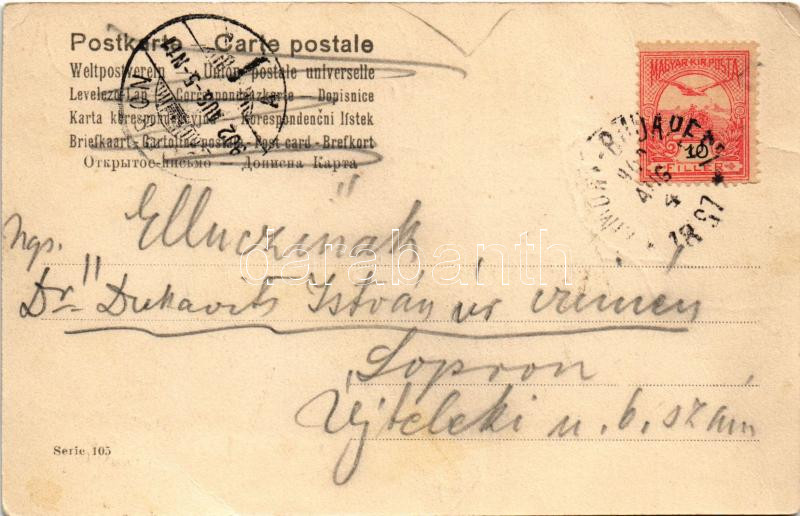 Postkarte - Carte postale
Weltpostverein - Union postale universelle
Levelező-Lap - Correspondenzkarte - Dopisnice
Karta korespondencyjna - Korespondenční lístek
Briefkaart - Cartolina postale - Post card - Brefkort
Открытое-письмо - Дописна Карта
902 AUG 5
MAGYAR KIR. POSTA
10
FILLER
BUDAPEST
902
AUG
4
Ngs.
Dr. Dukavits István úr
Sopron
Újteleki u. 6. szám
darabanth
Serie 105